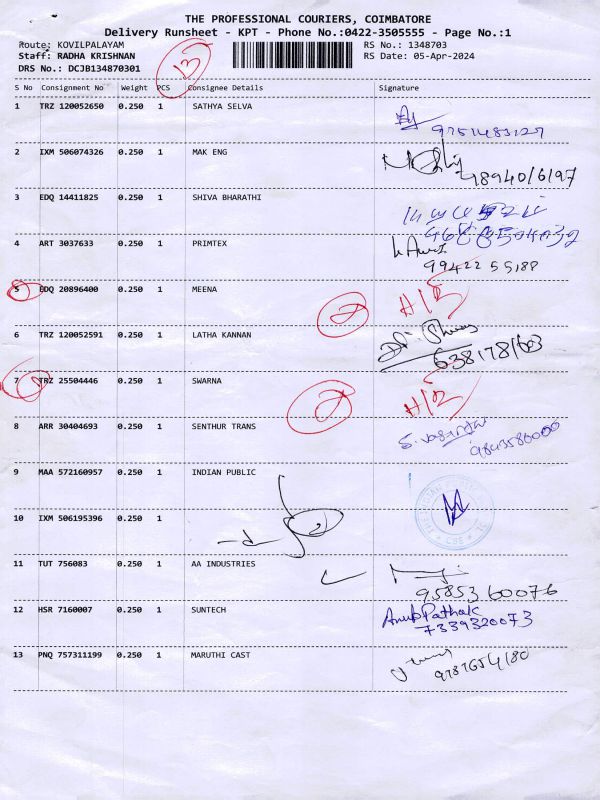 THE PROFESSIONAL COURIERS, COIMBATORE
Delivery Runsheet - KPT - Phone No.:0422-3505555 - Page No.:1
Route: KOVILPALAYAM RS No.: 1348703
Staff: RADHA KRISHNAN RS Date: 05-Apr-2024
DRS No.: DCJB134870301
13
S No Consignment No Weight PCS Consignee Details Signature
1 TRZ 120052650 0.250 1 SATHYA SELVA
2 IXM 506074326 0.250 1 MAK ENG
9894016197
3 EDQ 14411825 0.250 1 SHIVA BHARATHI
4 ART 3037633 0.250 1 PRIMTEX
99422 55188
5 EDQ 20896400 0.250 1 MEENA
6 TRZ 120052591 0.250 1 LATHA KANNAN
6381781603
7 TRZ 25504446 0.250 1 SWARNA
8 ARR 30404693 0.250 1 SENTHUR TRANS
9843580000
9 MAA 572160957 0.250 1 INDIAN PUBLIC
10 IXM 506195396 0.250 1
11 TUT 756083 0.250 1 AA INDUSTRIES
95853 60076
12 HSR 7160007 0.250 1 SUNTECH Anub Pathak
7339320073
13 PNQ 757311199 0.250 1 MARUTHI CAST
9787654180